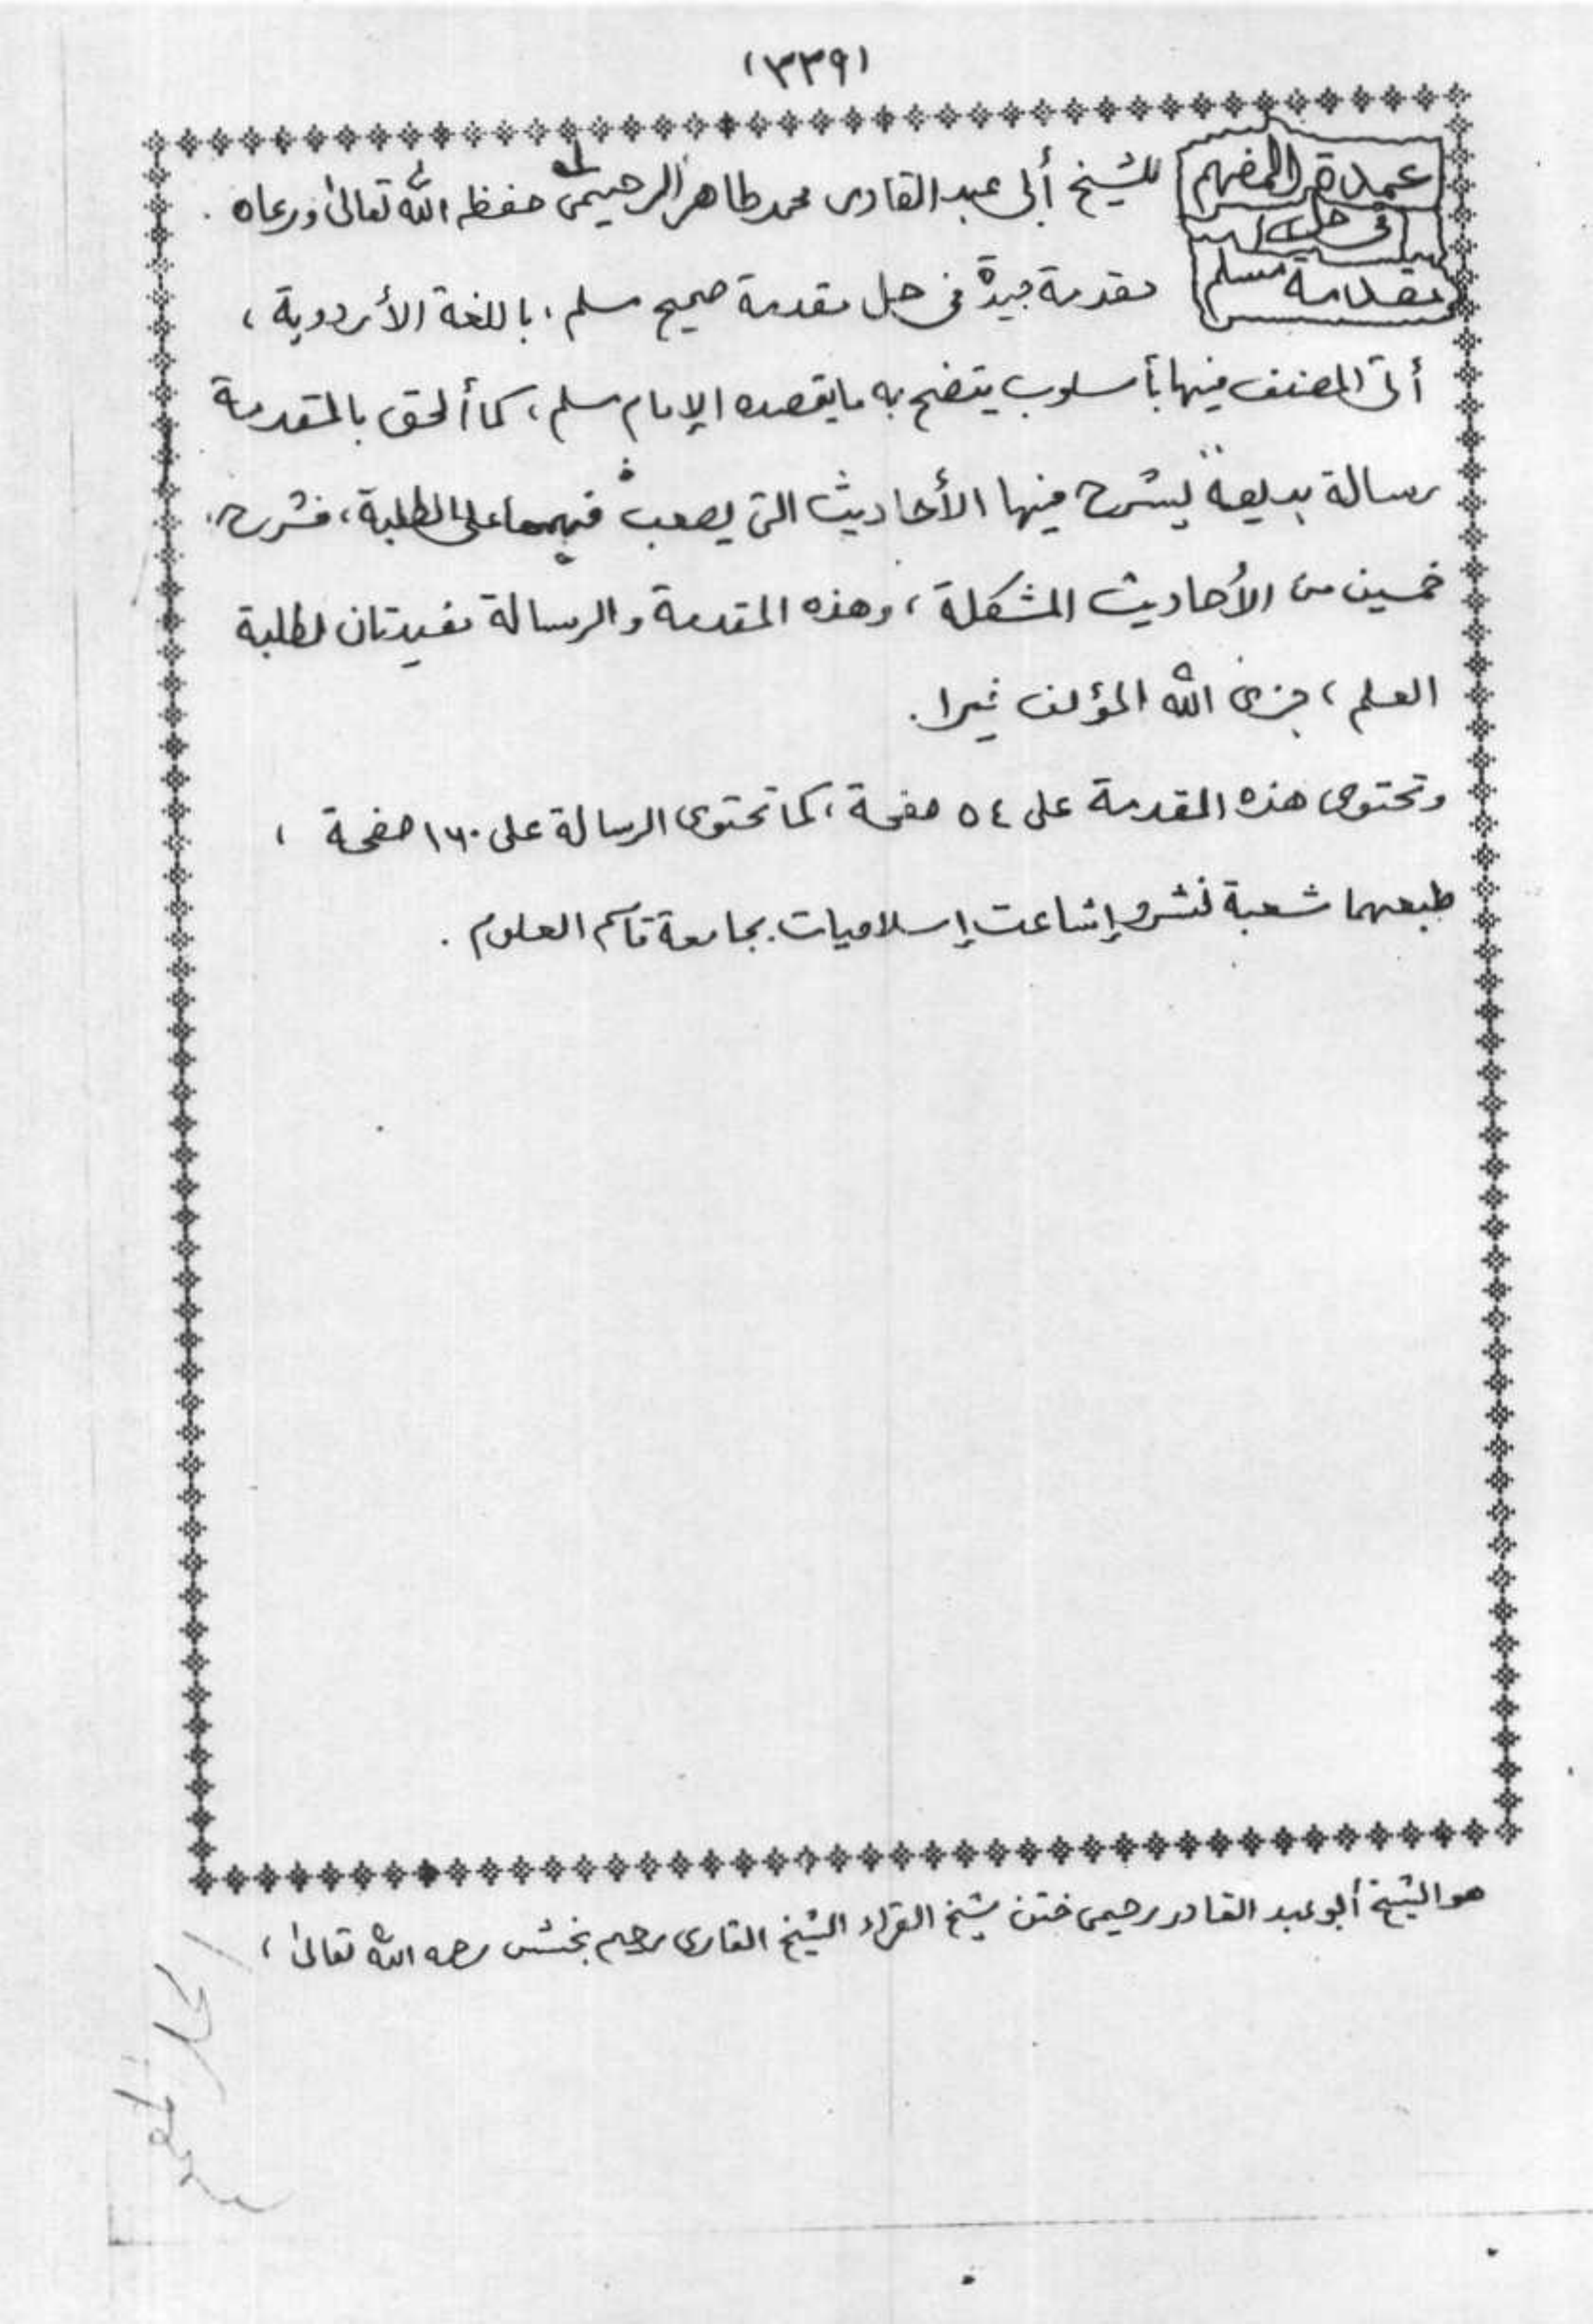 (٣٣٩)
عمدة المفهم
فى حل
مقدمة مسلم
للشيخ أبى عبد القادر محمد طاهر الرحيمى حفظه الله تعالىٰ ورعاه .
مقدمة جيدة فى حل مقدمة صحيح مسلم، باللغة الأردوية ،
أتى المصنف فيها بأسلوب يتضح به مايقصده الإمام مسلم، كما ألحق بالمقدمة
رسالة بديعة يشرح فيها الأحاديث التى يصعب فهمها على الطلبة، فشرح
خمسين من الأحاديث المشكلة، وهذه المقدمة والرسالة مفيدتان لطلبة
العلم ، فجزى الله المؤلف خيرا .
وتحتوى هذه المقدمة على ٥٤ صفحة، كما تحتوى الرسالة على ١٦٠ صفحة ،
طبعهما شعبة نشرو إشاعت إسلاميات بجامعة قاسم العلوم .
هو الشيخ أبو عبد القادر رحيمى ختن شيخ القراء الشيخ القارى رحيم بخش رحمه الله تعالىٰ ،